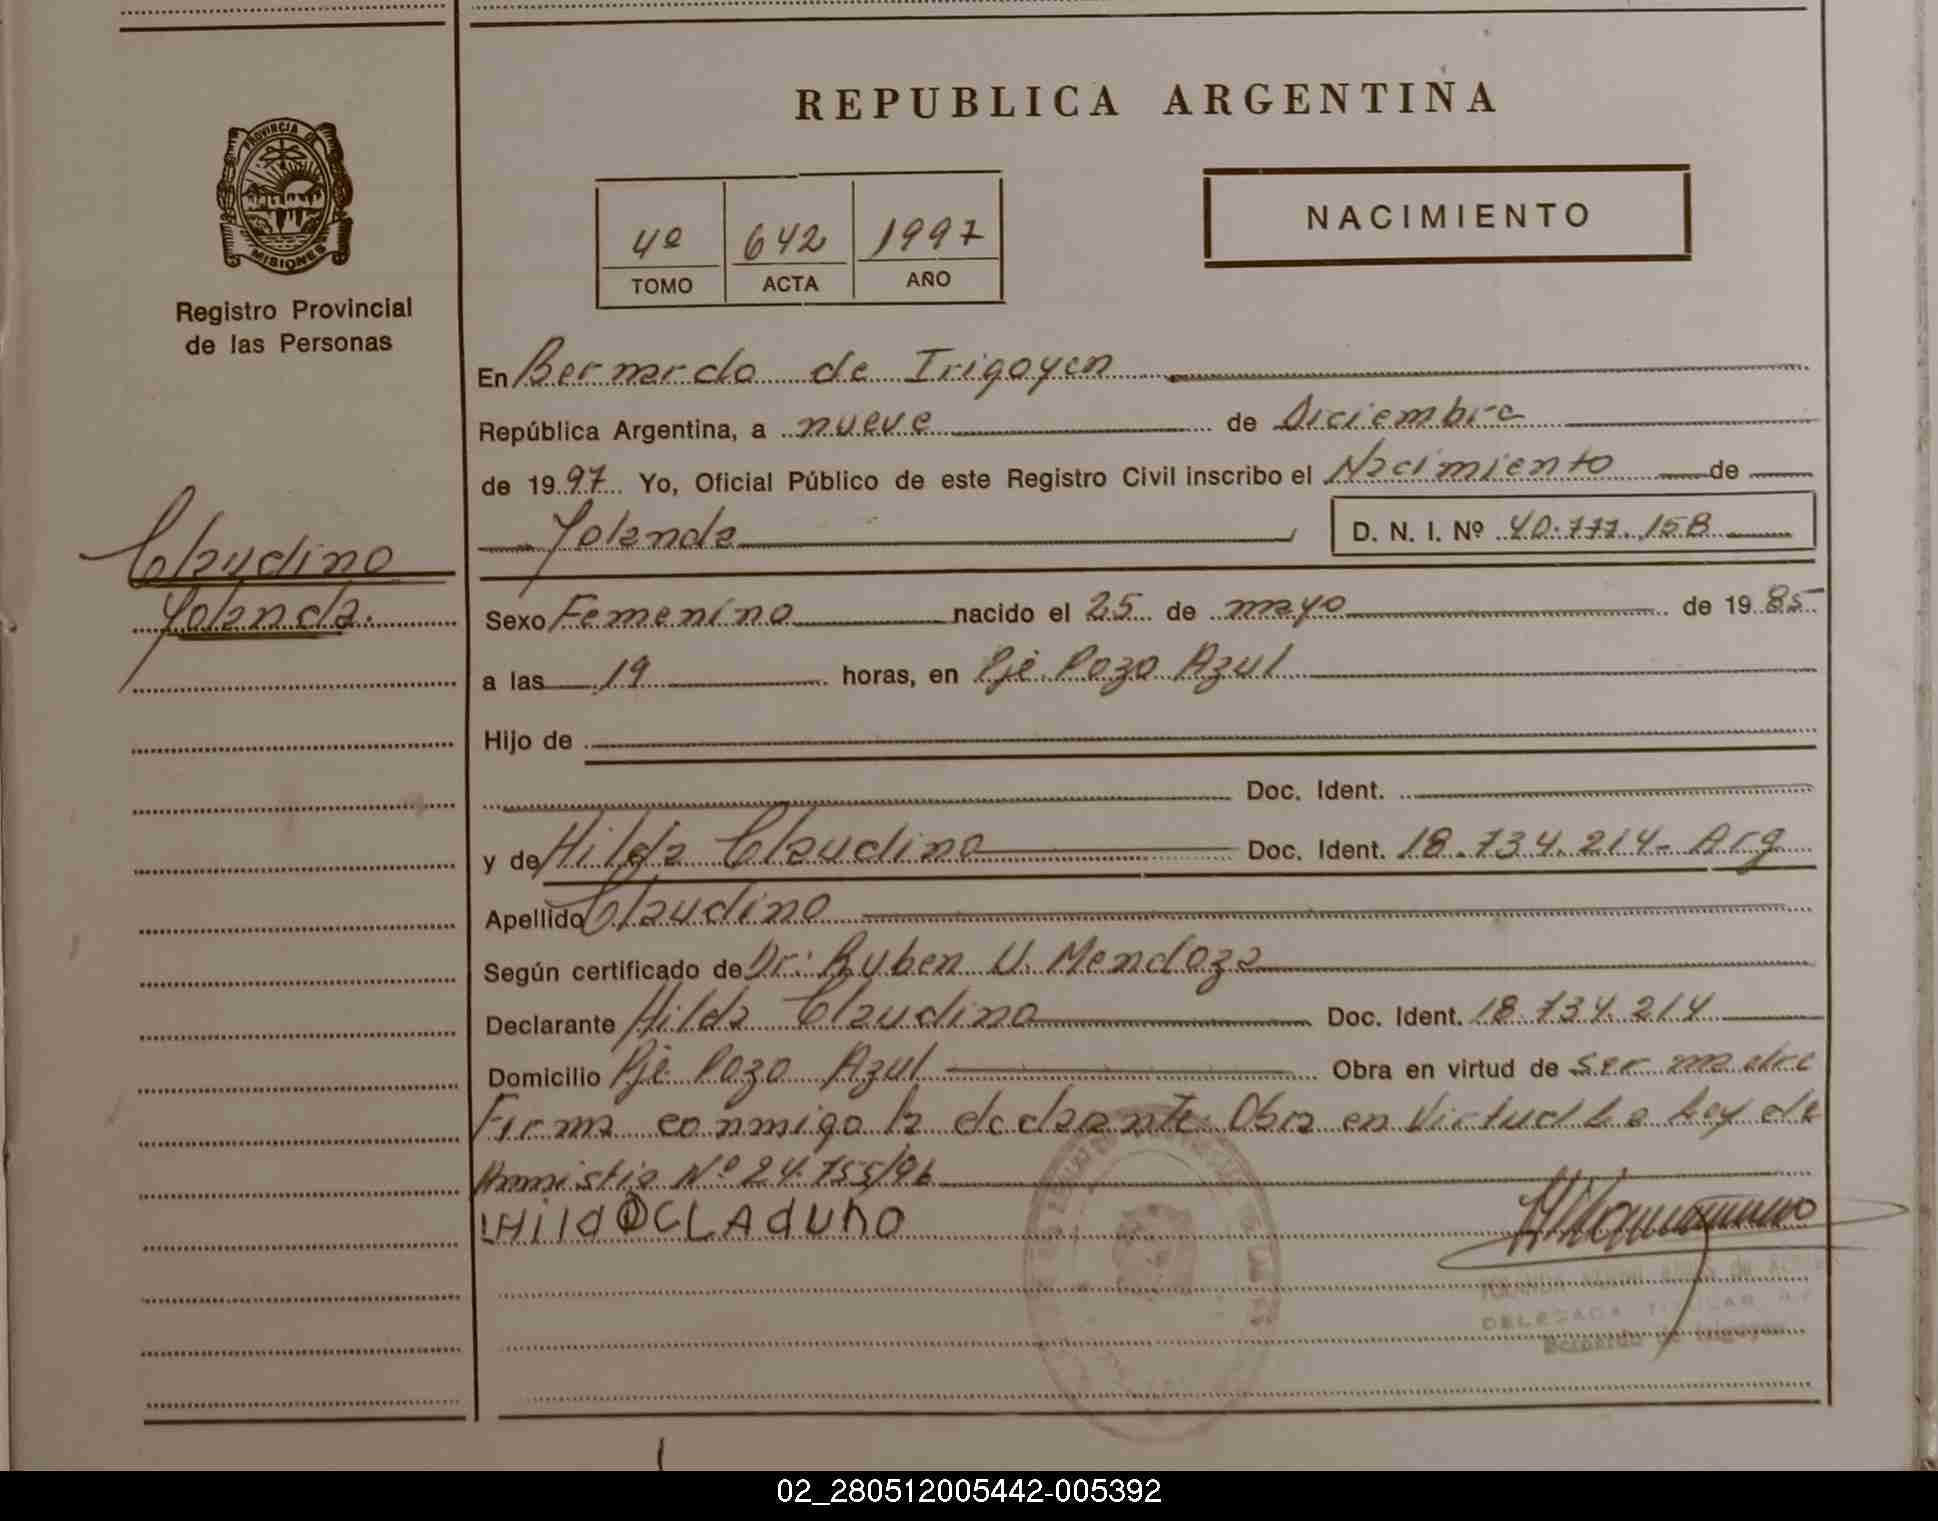 REPUBLICA ARGENTINA
PROVINCIA DE
MISIONES
Registro Provincial
de las Personas
4º 642 1997
TOMO ACTA AÑO
NACIMIENTO
En Bernardo de Irigoyen
República Argentina, a nueve de Diciembre
de 1997 Yo, Oficial Público de este Registro Civil inscribo el Nacimiento de
Yolanda D. N. I. Nº 40.777.158
Claudino
Yolanda.
Sexo Femenino nacido el 25 de mayo de 1985
a las 19 horas, en Pje. Pozo Azul
Hijo de
Doc. Ident.
y de Hilda Claudino Doc. Ident. 18.734.214- Arg
Apellido Claudino
Según certificado de Dr: Ruben U. Mendoza
Declarante Hilda Claudino Doc. Ident. 18.734.214
Domicilio Pje. Pozo Azul Obra en virtud de ser madre
Firma conmigo la declarante. Obra en Virtud La Ley de
Amnistia Nº 24.755/96
Hilda CLADUNO
DELEGADA TITULAR
Bernardo de Irigoyen
02_280512005442-005392